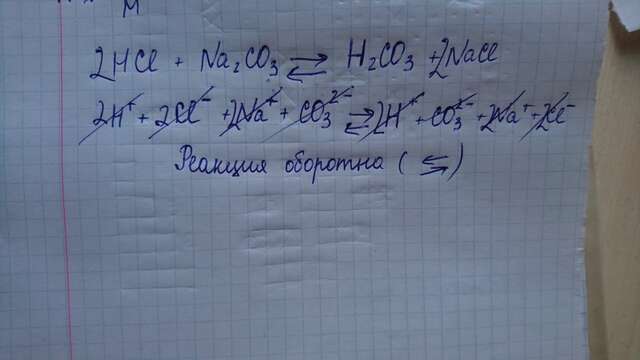 2HCl + Na₂CO₃ ⇄ H₂CO₃ + 2NaCl
2H⁺ + 2Cl⁻ + 2Na⁺ + CO₃²⁻ ⇄ 2H⁺ + CO₃²⁻ + 2Na⁺ + 2Cl⁻
Реакция оборотна (⇆)